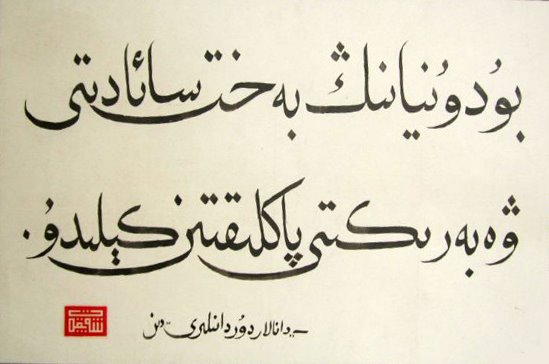 بۇ دۇنيانىڭ بەخت سائادىتى
ۋە بەرىكىتى پاكلىقتىن كېلىدۇ.
— دانالار دۇردانىلىرى دىن